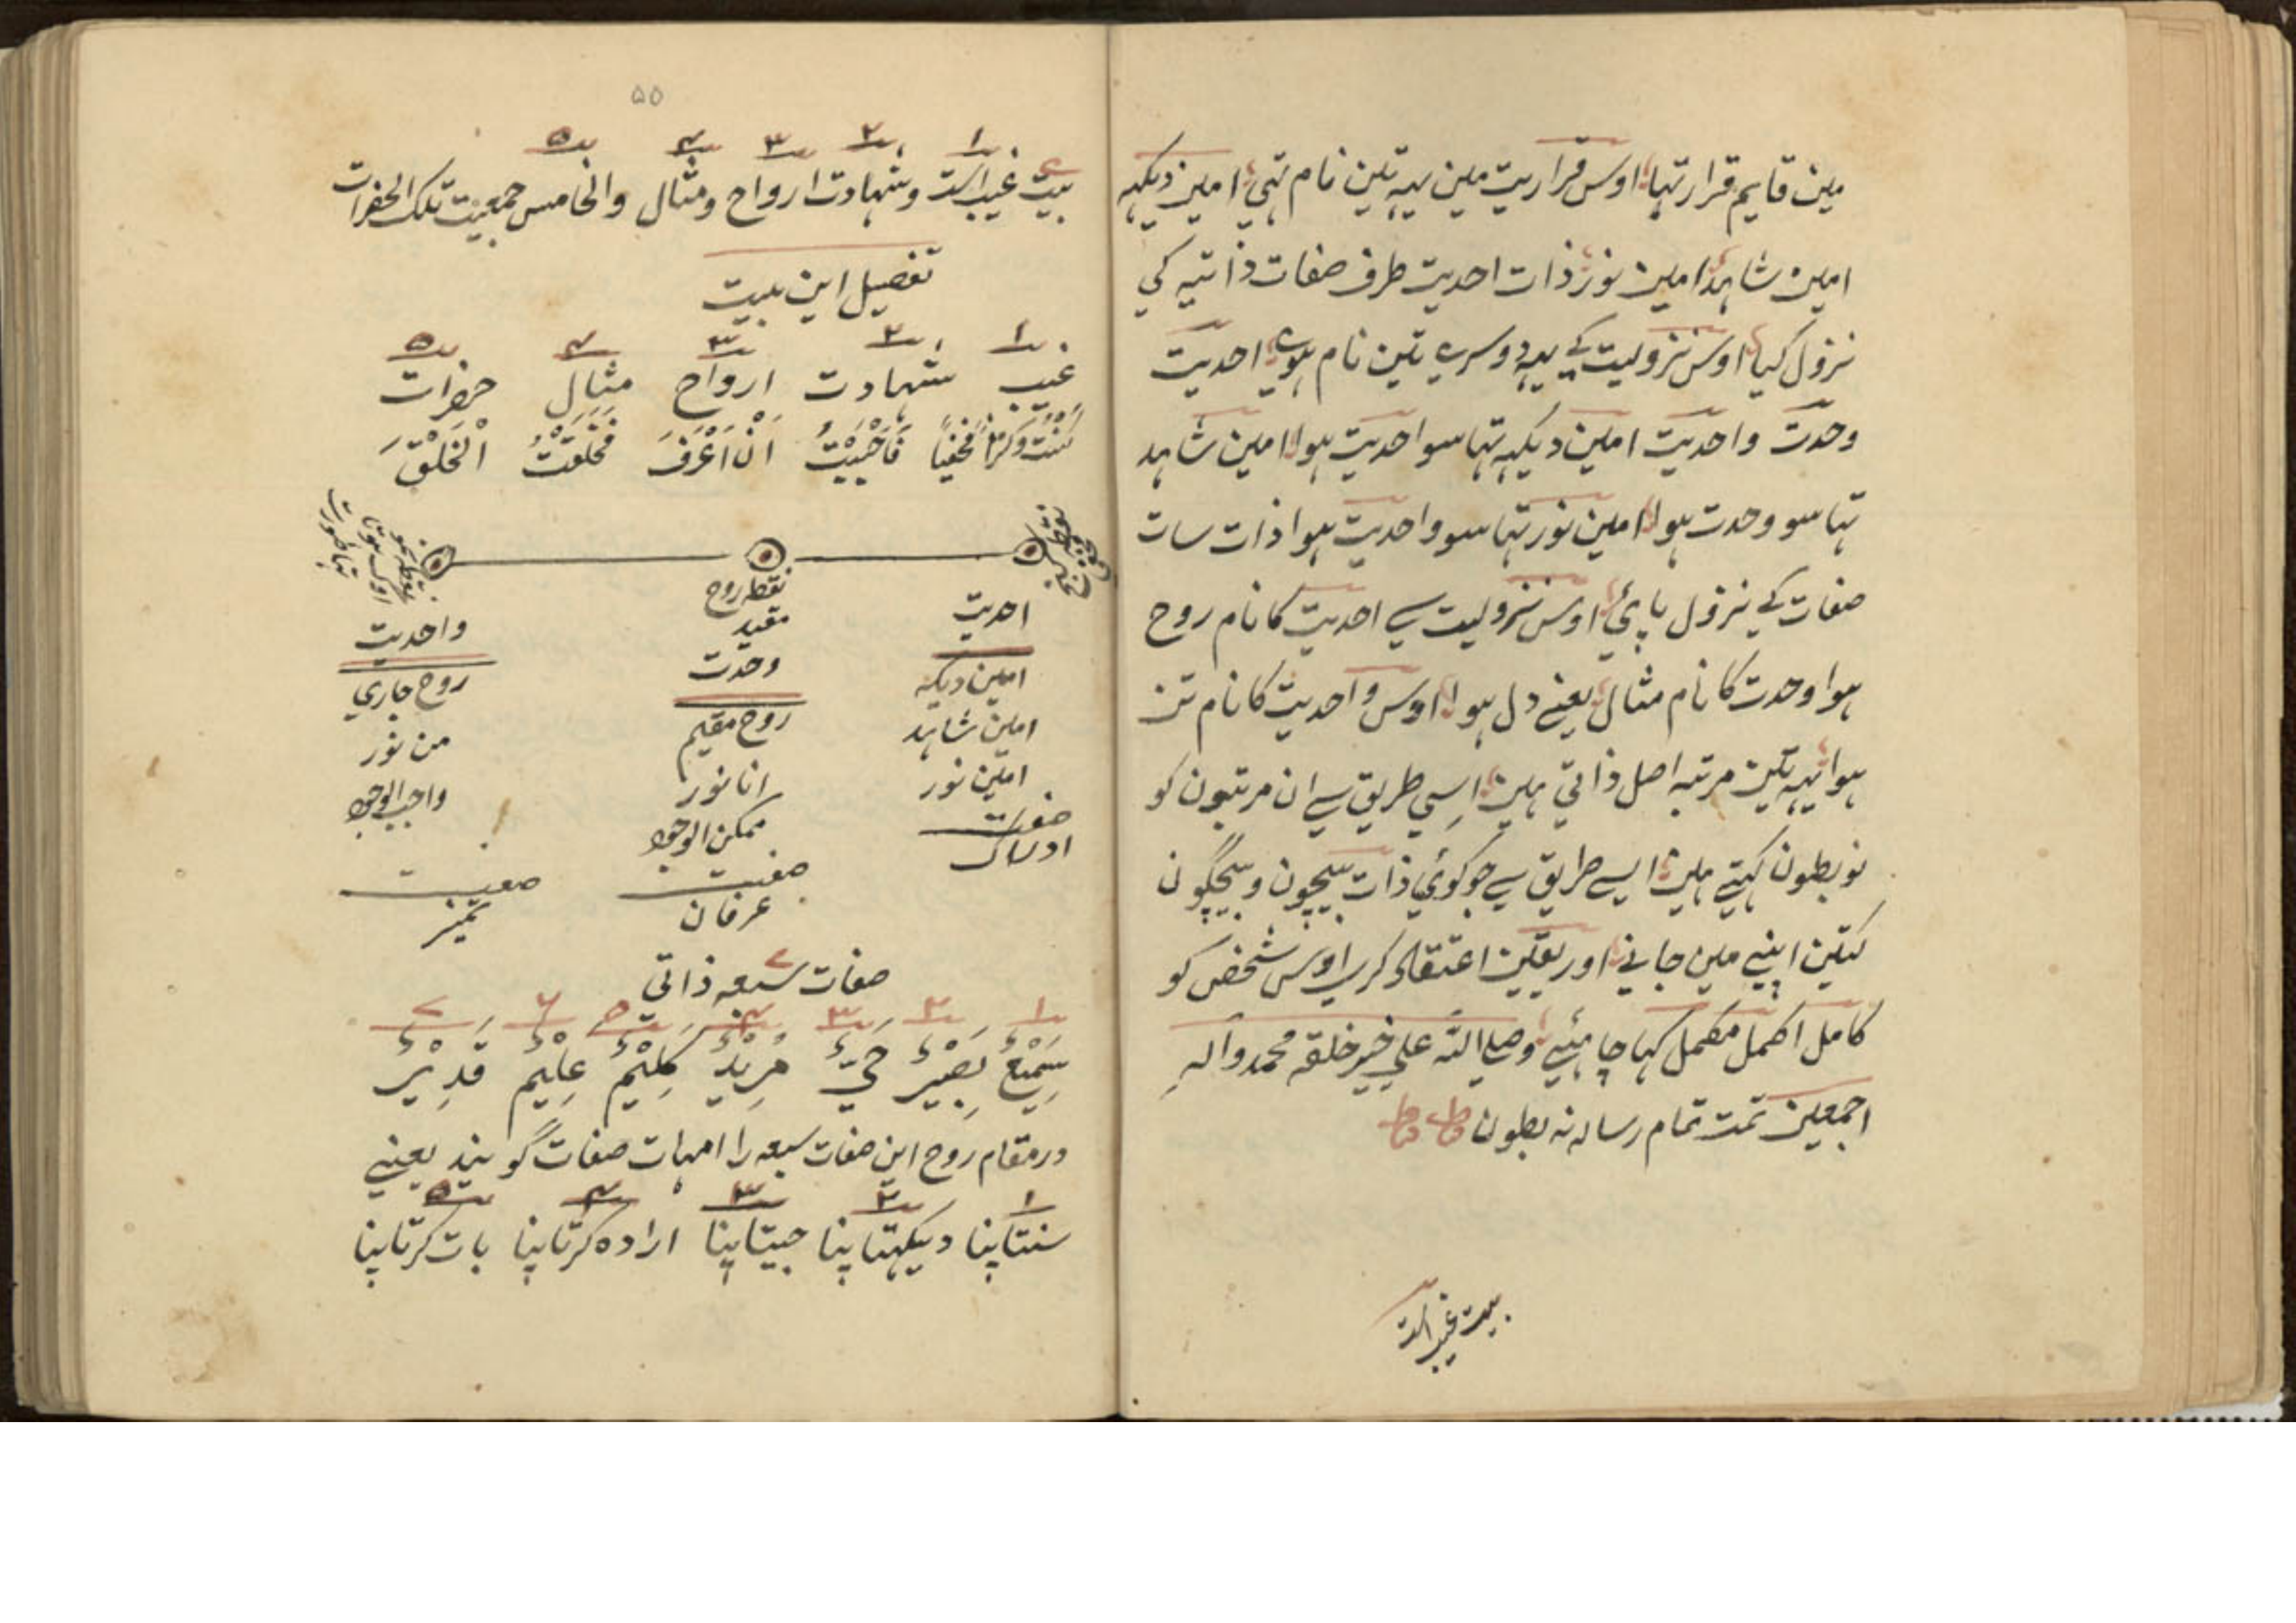 مین قایم قرار تہا اوس قراریت مین یہہ تین نام تہی امین دیکہہ
امین شاہد امین نور ذات احدیت طرف صفات ذاتیہ کی
نزول کیا اوس نزولیت کے یہہ دوسرے تین نام ہوے احدیت
وحدت واحدیت امین دیکہہ تہا سو احدیت ہوا امین شاہد
تہا سو وحدت ہوا امین نور تہا سو واحدیت ہوا ذات سات
صفات کے نزول پائی اوس نزولیت سے احدیت کا نام روح
ہوا وحدت کا نام مثال یعنے دل ہوا اوس واحدیت کا نام تن
ہوا یہہ تین مرتبہ اصل ذاتی ہین اسی طریق سے ان مرتبون کو
نو بطون کہتے ہین ایسے طریق سے جو کوئی ذات بیچون و بیچگون
کتین اپنے مین جانے اور یقین اعتقاد کرے اوس شخص کو
کامل اکمل مکمل کہا چاہئیے وصلی اللہ علی خیر خلقہ محمد وآلہِ
اجمعین تمت تمام رسالہ نہ بطون
بیت غیب است
۵۵
۱ ۲ ۳ ۴ ۵
بیت غیب است و شہادت ارواح و مثال والخامس جمعیت تلک الحضرات
تفصیل این بیت
۱ ۲ ۳ ۴ ۵
غیب شہادت ارواح مثال حضرات
کُنْتُ کنزاً مخفیاً فَاَحْبَبْتُ اَنْ اَعْرَفَ فَخَلَقْتُ الْخَلْقَ
نقطہ روح
مقید
احدیت وحدت واحدیت
امین دیکہہ روح مقیم روح جاری
امین شاہد انا نور من نور
امین نور ممکن الوجود واجب الوجود
صفت صفت صفت
ادراک عرفان تمیز
صفات سبعہ ذاتی
۱ ۲ ۳ ۴ ۵ ۶ ۷
سَمِیْعٌ بَصِیْرٌ حَیٌّ مُرِیْدٌ کَلِیْمٌ عَلِیْمٌ قَدِیْرٌ
در مقام روح این صفات سبعہ را امہات صفات گویند یعنے
۱ ۲ ۳ ۴ ۵
سنتا پنا دیکہتا پنا جیتا پنا ارادہ کرتا پنا بات کرتا پنا